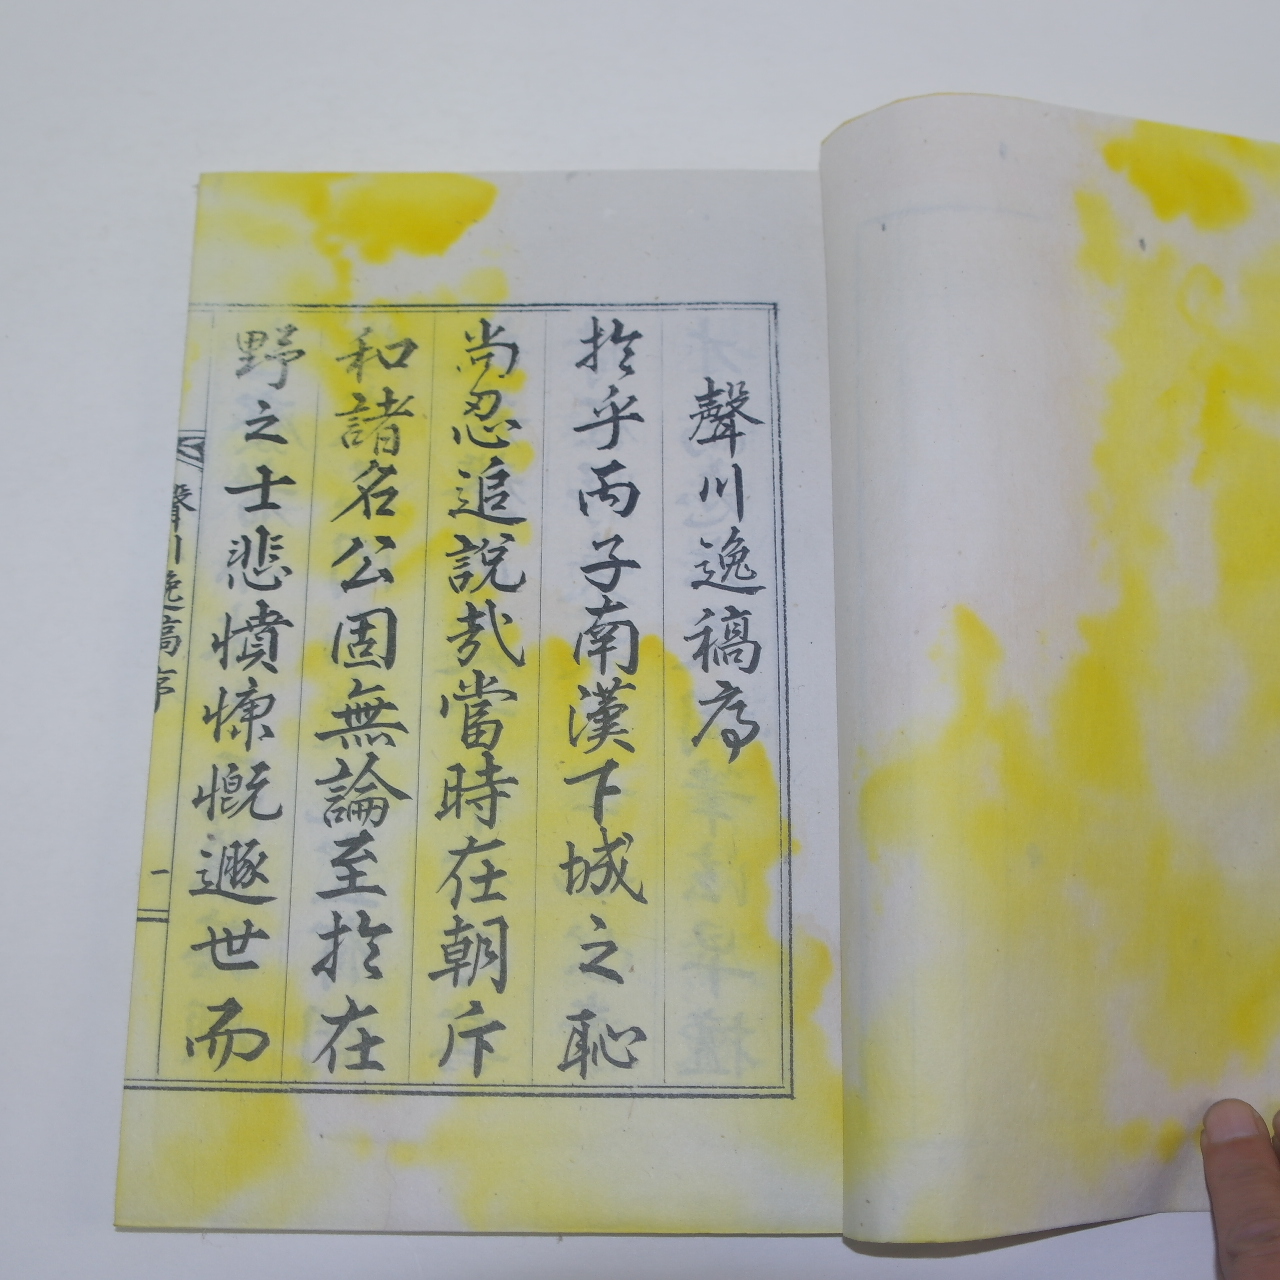 聲川逸稿序
於乎丙子南漢下城之恥
尚忍追說哉當時在朝斥
和諸名公固無論至於在
野之士悲憤慷慨遯世而
聲川逸稿序
一